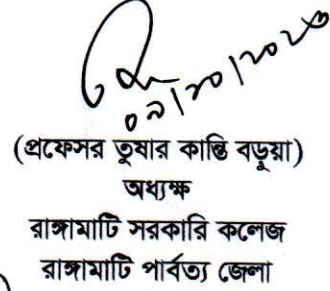 ০৯/১০/২০২৩
(প্রফেসর তুষার কান্তি বড়ুয়া)
অধ্যক্ষ
রাঙ্গামাটি সরকারি কলেজ
রাঙ্গামাটি পার্বত্য জেলা